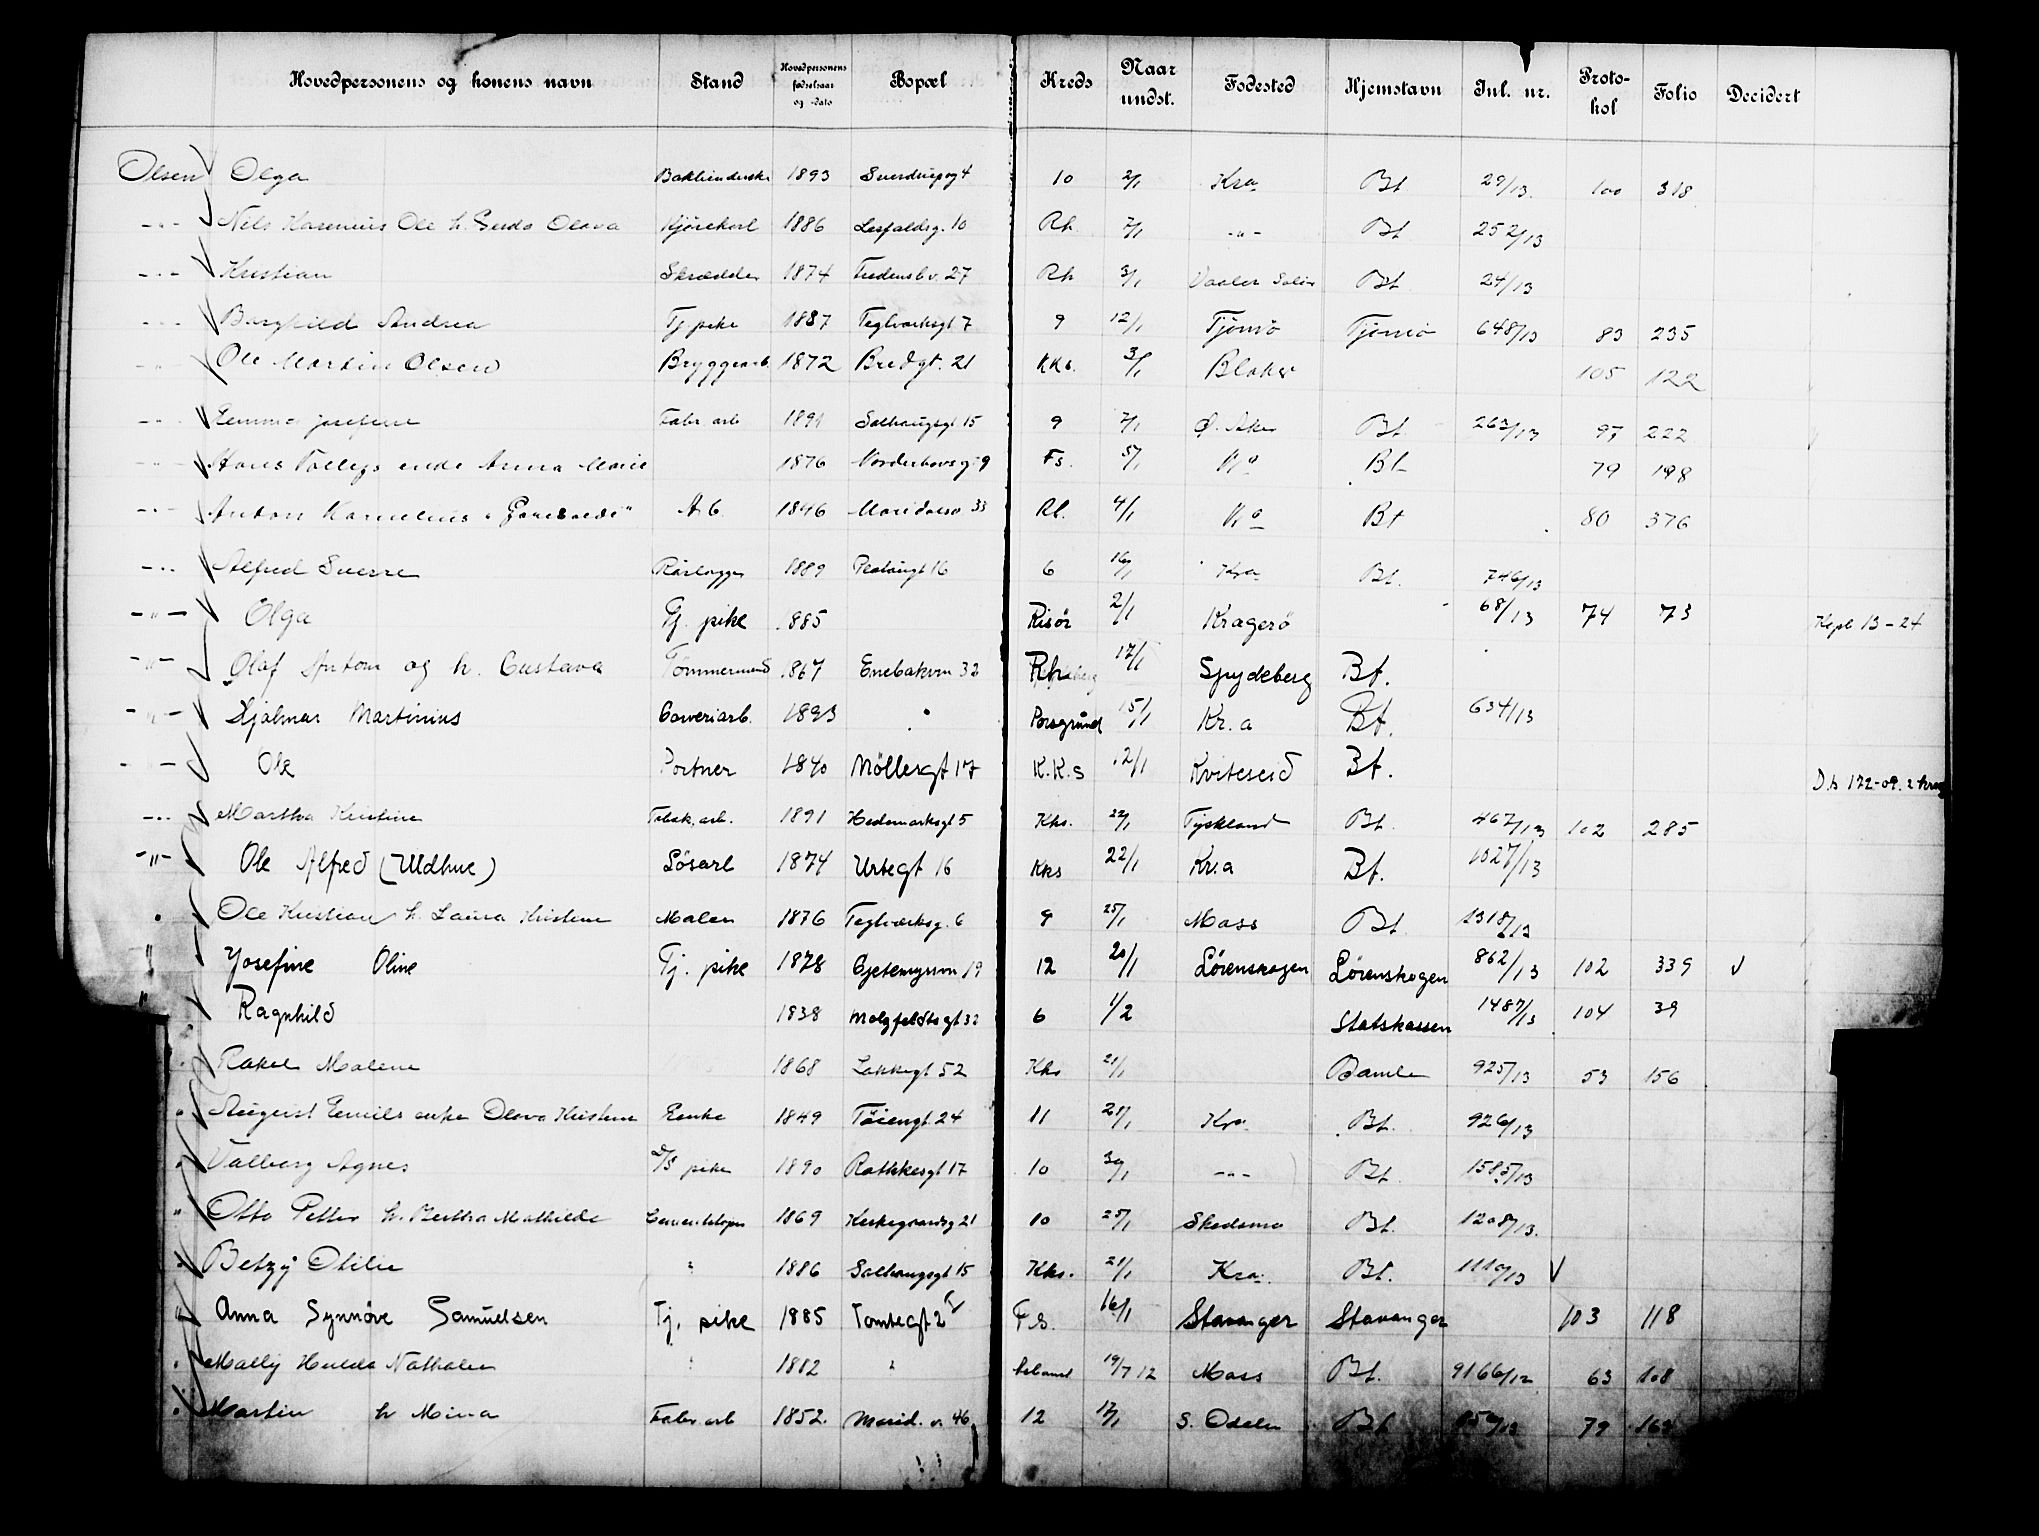 Hovedpersonens og konens navn Stand Hovedpersonens fødselsaar og -dato Bopæl Kreds Naar undst. Fødested Hjemstavn Jnl. nr. Protokol Folio Decidert
Olsen Olga 1893 4 10 2/1 Kra Bt 29/13 100 318
-"- Nels Ole h. Olava Kjørekarl 1886 10 Rh. 7/1 -"- Bt 252/13
-"- Kristian Skrædder 1874 Fredensbv. 27 Rh 3/1 Vaaler Solør Bt 24/13
-"- Borghild Andrea Tj. pike 1887 Teglverksgt 7 9 12/1 Tjømø Tjømø 648/13 83 235
" Ole Martin Olsen Bryggearb 1872 Bredgt. 21 KKs. 3/1 Blaker 105 122
-"- Emma Josefine Fabr. arb 1891 Solhaugsgt 15 9 7/1 Ø. Aker Bt. 263/13 97 222
-"- Hans enke Anna Marie 1876 Norderhovsg. 9 Fs. 5/1 Kra Bt 79 198
-"- Anton Kornelius "Garibaldi" Arb 1846 Maridalsv 33 Rh. 4/1 Kra Bt 80 376
-"- Alfred Sverre Rørlegger 1889 16 6 16/1 Kra Bt. 746/13
-"- Olga Tj. pike 1885 Risør 2/1 Kragerø 68/13 74 73 Kopb 13-24
-"- Olaf Anton og h. Gustava Tømmermand 1867 Enebakvn 32 Rh 17/1 Spydeberg Bt.
-"- Hjalmar Martinius Garveriarb. 1893 " Porsgrund 15/1 Kr.a Bt. 634/13
-"- Ole Portner 1840 Møllergt 17 K.K.s 12/1 Kviteseid Bt. D.b 172-09.
-"- Martha Kristine Tobak. arb. 1891 Hedemarksgt 5 Kks. 22/1 Tyskland Bt. 467/13 102 285
-"- Ole Alfred (Uldhue) Løsarb 1874 Urtegt 16 Kks 22/1 Kr.a Bt. 1027/13
" Ole Kristian h. Laura Kristine Maler 1876 Teglverksg. 6 9 25/1 Moss Bt. 1318/13
" Josefine Oline Tj. pike 1878 Gjetemyrsvn 19 12 20/1 Lørenskogen Lørenskogen 862/13 102 339 √
" Ragnhild 1838 Molzfeldtsgt 32 6 1/2 Statskassen 1487/13 104 39
" Rakel Malene 1868 Lakkegt 52 Kks 21/1 Bamle 925/13 53 156
" August Emils enke Olava Kristine Enke 1849 Tøiengt. 24 11 21/1 Kra Bt. 926/13
" Valborg Agnes pike 1890 Rathkesgt 17 10 30/1 -"- Bt. 1585/13
" Otto Petter h. Bertha Mathilde 1869 Kirkegaardsg 21 10 25/1 Skedsmo Bt. 1208/13.
" Betzy Otilie " 1886 Solhaugsgt 15 Kks. 21/1 Kra. Bt. 1110/13 √
" Anna Synnøve Samuelsen Tj. pike 1885 Tomtegt 2 F.s. 16/1 Stavanger Stavanger 103 118
" Mally Hulda Nathalie " 1882 " 19/7 12 Moss Bt. 9166/12 63 108
" Martin h Mina Fabr. arb 1852 Marid. v. 46 12 17/1 S. Odalen Bt 79